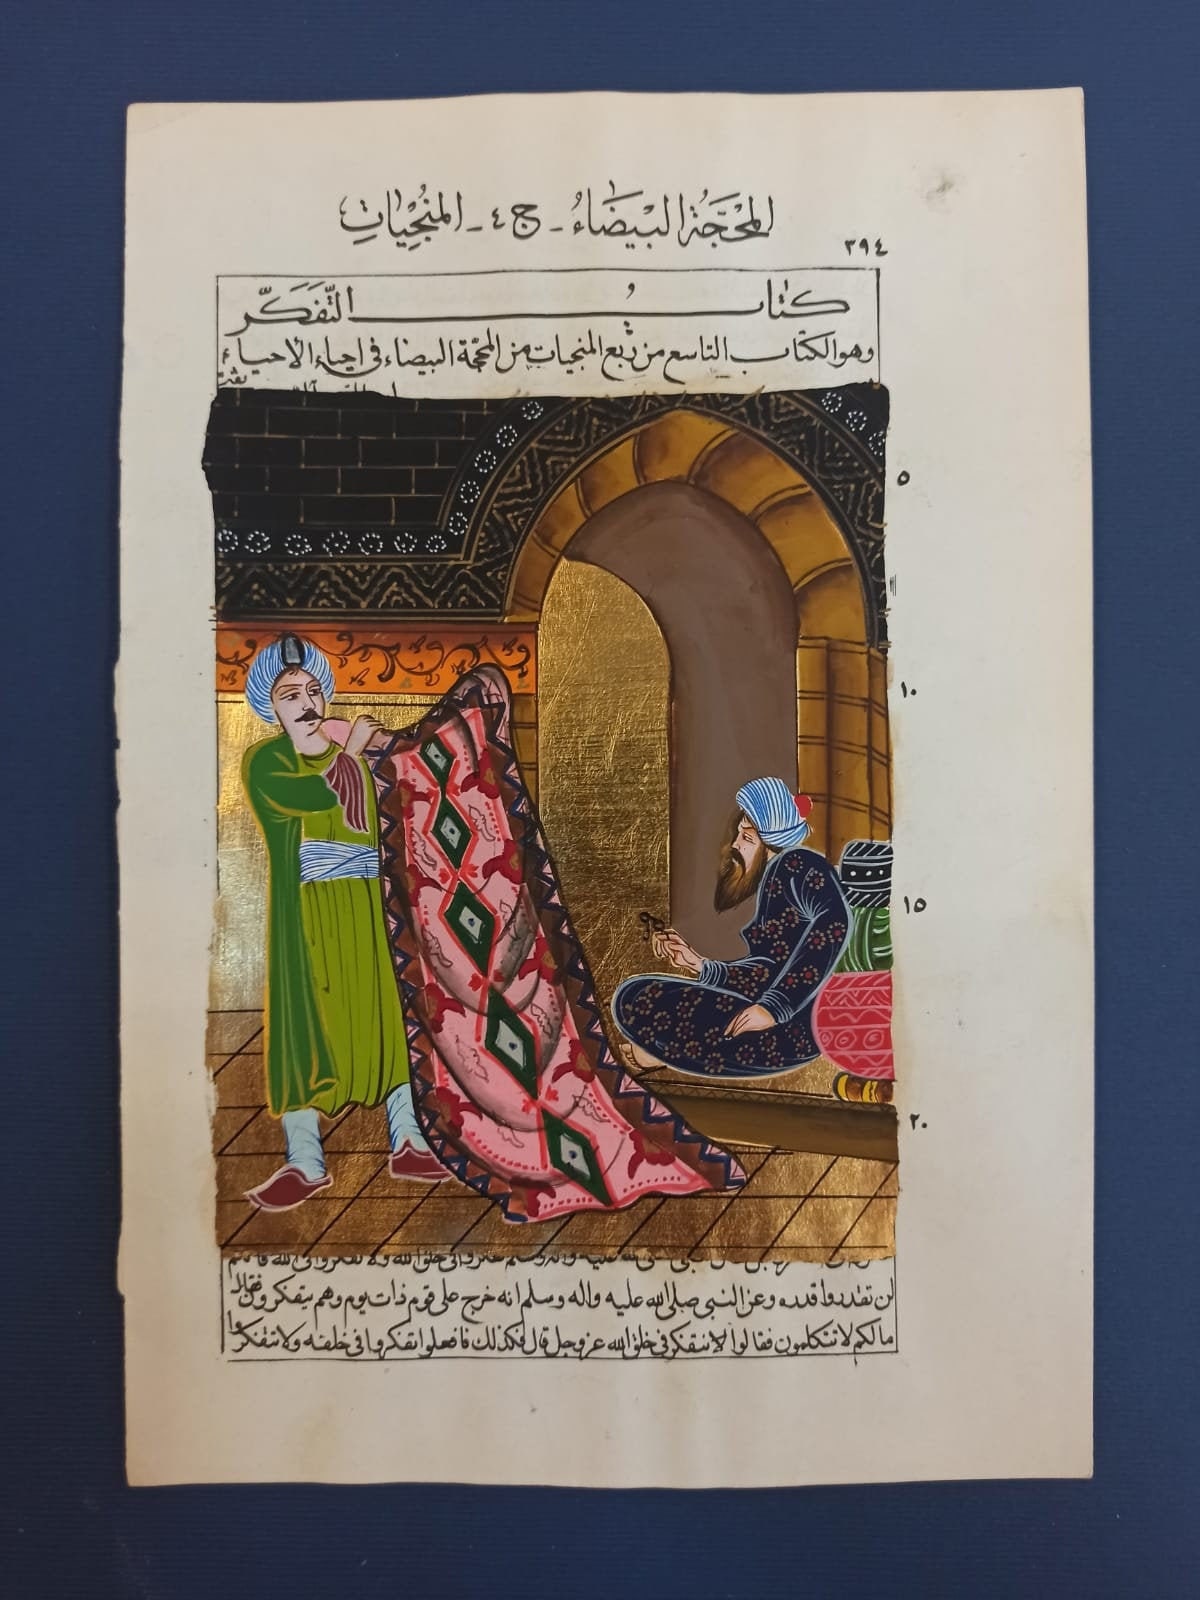 المَحَجَّةُ البَيْضَاءُ - ج ٤ - المُنْجِيَاتِ
٣٩٤
كتابُ التَّفَكَّرّ
وهو الكتاب التاسع من ربع المنجيات من المحجة البيضاء في احياء الاحياء
٥
١٠
١٥
٢٠
صلى الله عليه واله وسلم في خلق الله ولا تفكروا في الله
لن تقدروا قدره وعن النبي صلى الله عليه واله وسلم انه خرج على قوم ذات يوم وهم يتفكرون فقال
مالكم لا تتكلمون فقالوا نتفكر في خلق الله عز وجل قال فكذلك فافعلوا تفكروا في خلقه ولا تتفكروا